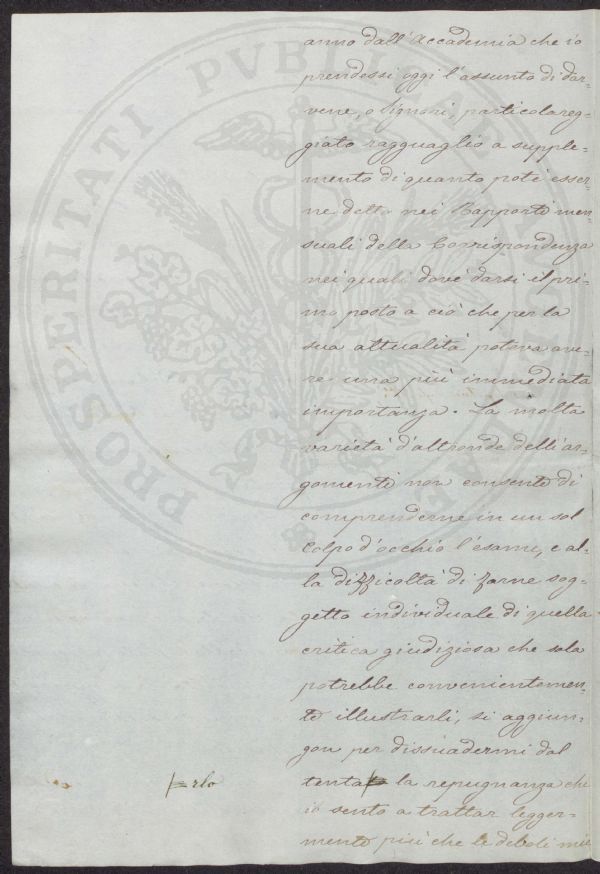 anno dall'Accademia che io
prendessi oggi l'assunto di dar-
vene, o Signori, particolareg-
giato ragguaglio a supple-
mento di quanto poté esser-
ne detto nei Rapporti men-
suali della Corrispondenza
nei quali dové darsi il pri-
mo posto a ciò che per la
sua attualità poteva ave-
re una più immediata
importanza. La molta
varietà d'altronde dell'ar-
gomento non consente di
comprenderne in un sol
colpo d'occhio l'esame, e al-
la difficoltà di farne sog-
getto individuale di quella
critica giudiziosa che sola
potrebbe convenientemen-
te illustrarli, si aggiun-
gon per dissuadermi dal
tenta la repugnanza che
rlo
io sento a trattar legger-
mente più che le deboli mie
PROSPERITATI PVBLICAE